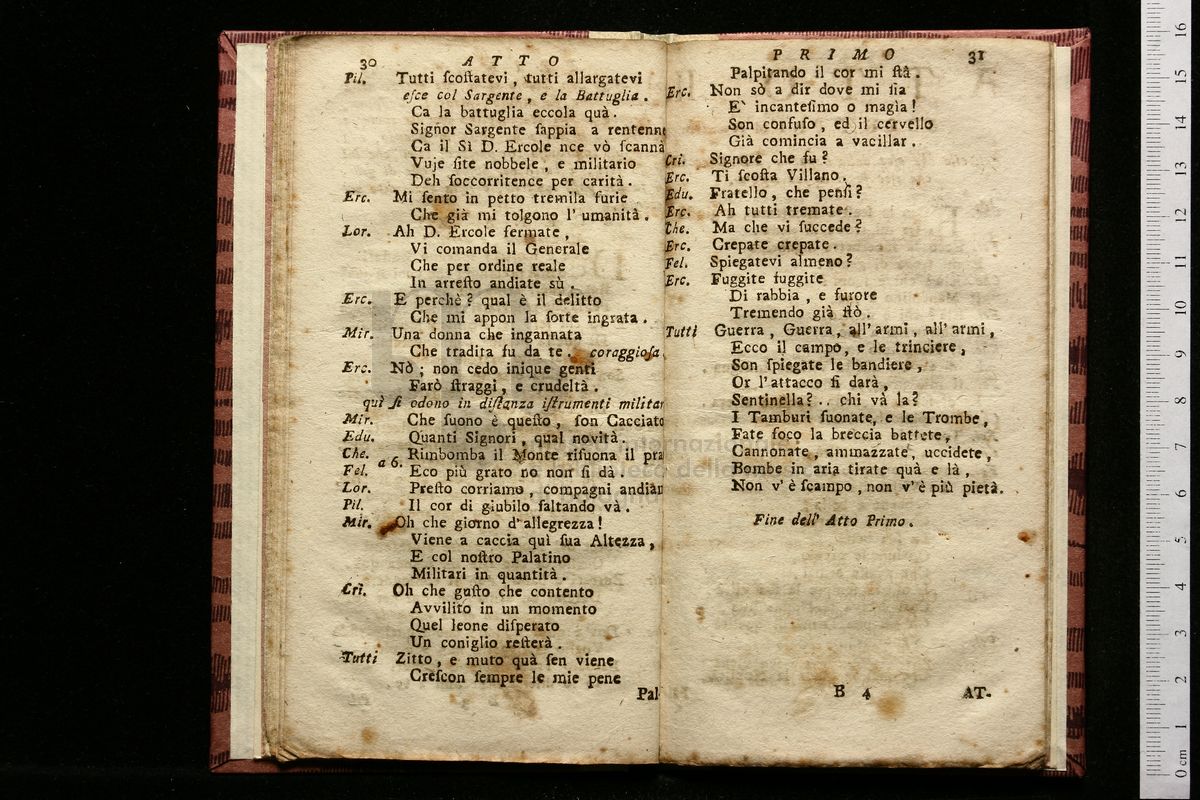 30 ATTO
Pil. Tutti ſcoſtatevi, tutti allargatevi
eſce col Sargente, e la Battuglia.
Ca la battuglia eccola quà.
Signor Sargente ſappia a rentenne
Ca il Sì D. Ercole nce vò ſcannà
Vuje ſite nobbele, e militario
Deh ſoccorritence per carità.
Erc. Mi ſento in petto tremila furie
Che già mi tolgono l' umanità.
Lor. Ah D. Ercole fermate,
Vi comanda il Generale
Che per ordine reale
In arreſto andiate sù.
Erc. E perchè? qual è il delitto
Che mi appon la ſorte ingrata.
Mir. Una donna che ingannata
Che tradita fu da te. coraggioſa
Erc. Nò; non cedo inique genti
Farò ſtraggi, e crudeltà.
quì ſi odono in diſtanza iſtrumenti militar
Mir. Che ſuono è queſto, ſon Cacciato
Edu. Quanti Signori, qual novità.
Che. a 6. Rimbomba il Monte riſuona il pra
Fel. Eco più grato no non ſi dà.
Lor. Preſto corriamo, compagni andiàn
Pil. Il cor di giubilo ſaltando và.
Mir. Oh che giorno d'allegrezza!
Viene a caccia quì ſua Altezza,
E col noſtro Palatino
Militari in quantità.
Crì. Oh che guſto che contento
Avvilito in un momento
Quel leone diſperato
Un coniglio reſterà.
Tutti Zitto, e muto quà ſen viene
Creſcon ſempre le mie pene
Pal
PRIMO 31
Palpitando il cor mi ſtà.
Erc. Non sò a dir dove mi ſia
E' incanteſimo o magìa!
Son confuſo, ed il cervello
Già comincia a vacillar.
Crì. Signore che fu?
Erc. Ti ſcoſta Villano.
Edu. Fratello, che penſi?
Erc. Ah tutti tremate.
Che. Ma che vi ſuccede?
Erc. Crepate crepate.
Fel. Spiegatevi almeno?
Erc. Fuggite fuggite
Di rabbia, e furore
Tremendo già ſtò.
Tutti Guerra, Guerra, all' armi, all' armi,
Ecco il campo, e le trinciere,
Son ſpiegate le bandiere,
Or l'attacco ſi darà,
Sentinella? .. chi và la?
I Tamburi ſuonate, e le Trombe,
Fate foco la breccia battete,
Cannonate, ammazzate, uccidete,
Bombe in aria tirate quà e là,
Non v' è ſcampo, non v' è più pietà.
Fine dell' Atto Primo.
B 4 AT-